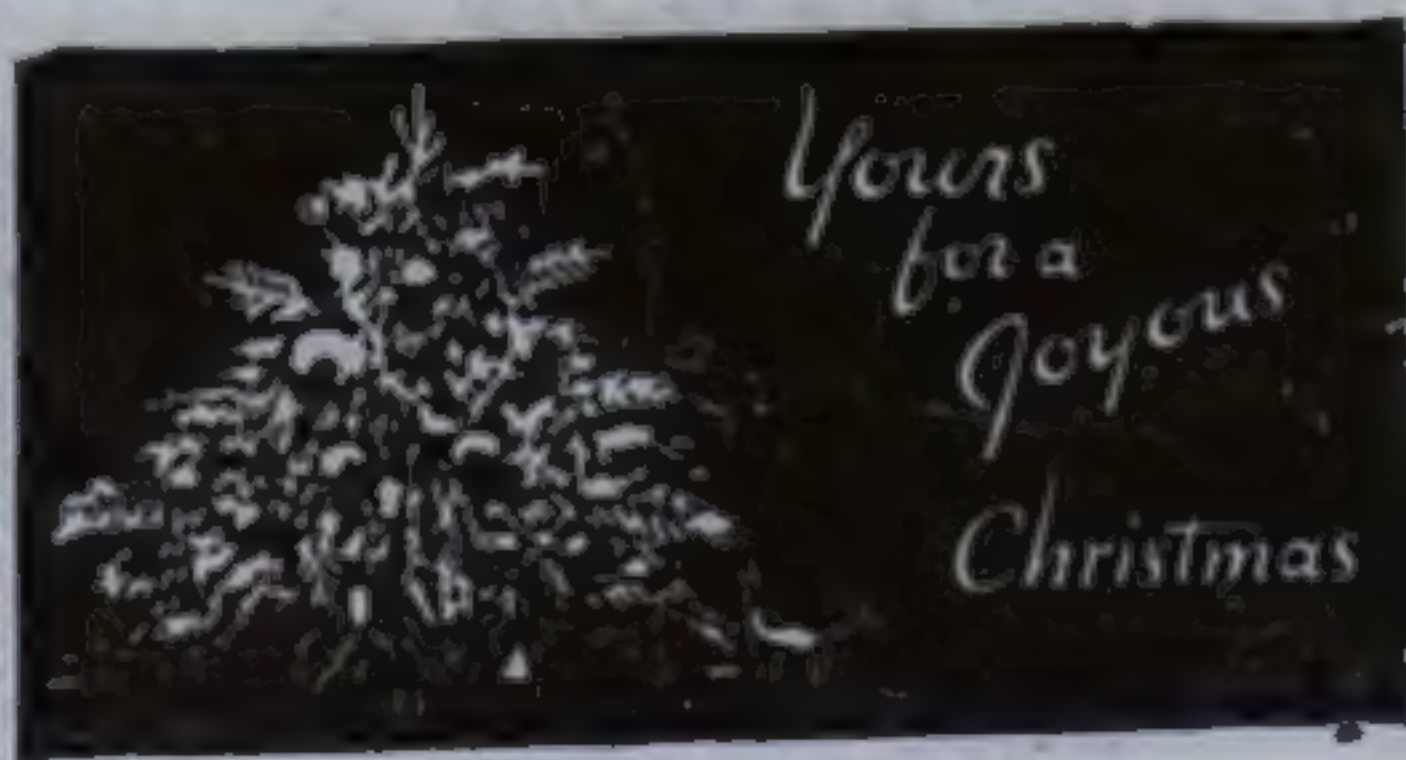 Yours
for a
Joyous
Christmas